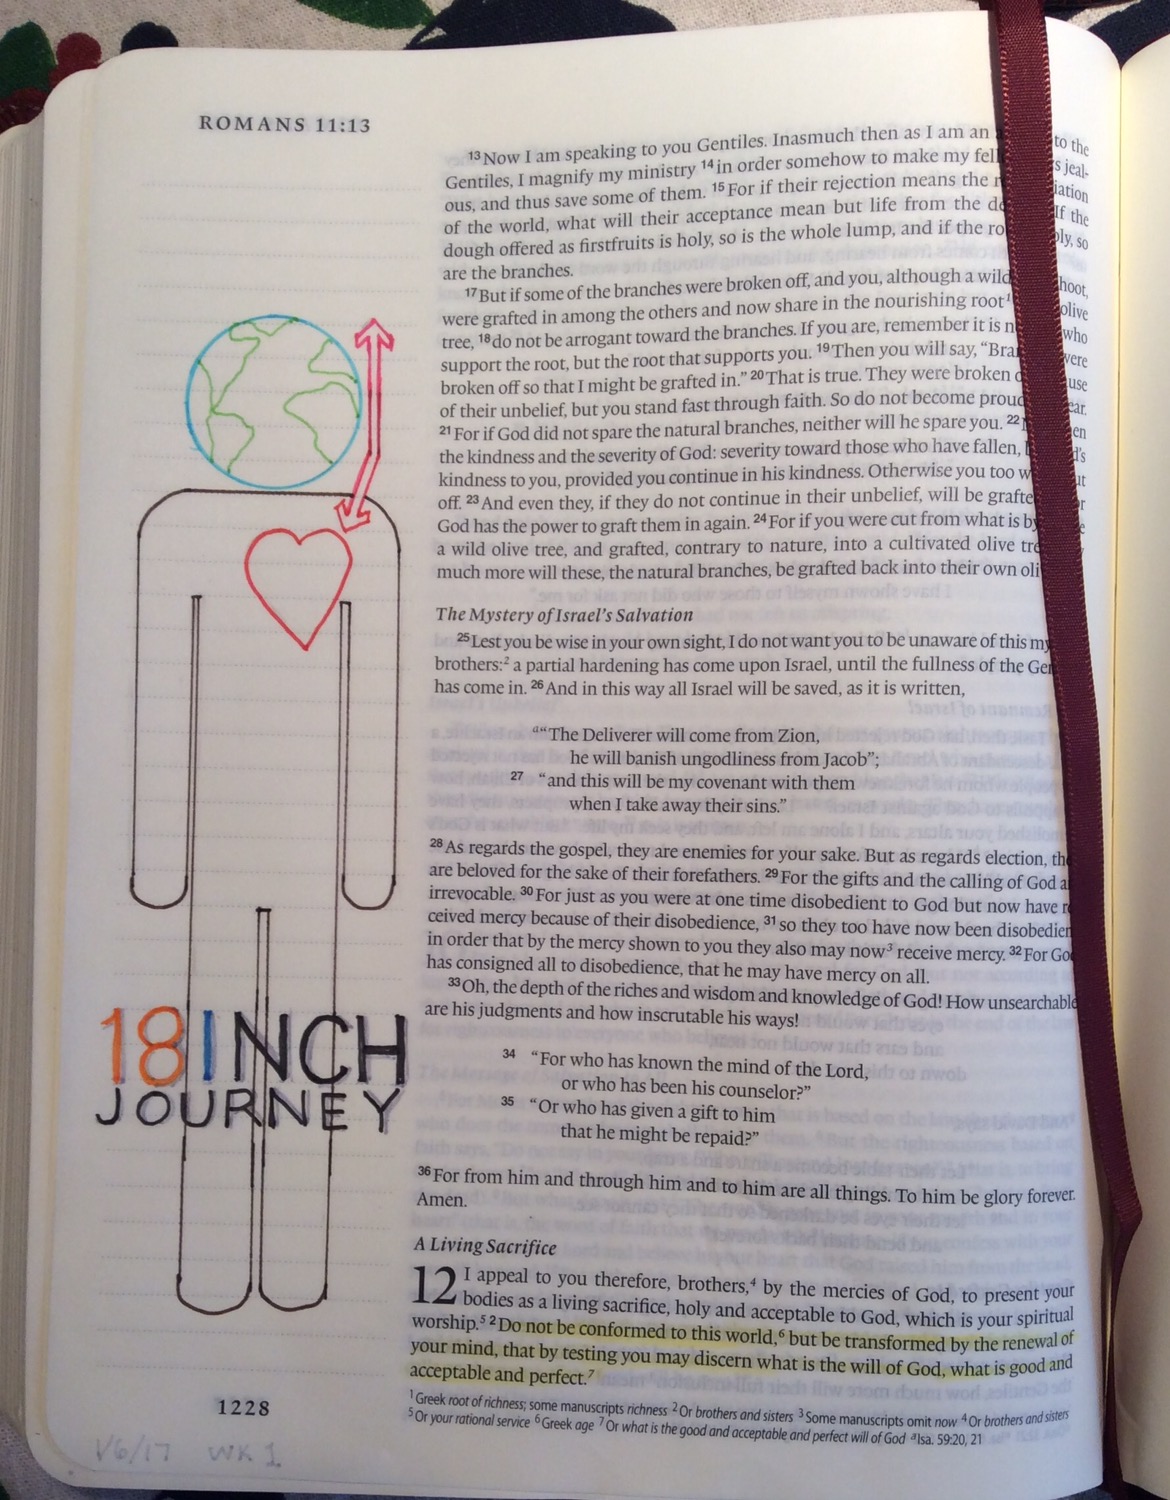 ROMANS 11:13
13 Now I am speaking to you Gentiles. Inasmuch then as I am an to the
Gentiles, I magnify my ministry 14 in order somehow to make my
ous, and thus save some of them. 15 For if their rejection means the
of the world, what will their acceptance mean but life from the If the
dough offered as firstfruits is holy, so is the whole lump, and if the so
are the branches.
17 But if some of the branches were broken off, and you, although a wild
were grafted in among the others and now share in the nourishing root1 olive
tree, 18 do not be arrogant toward the branches. If you are, remember it is who
support the root, but the root that supports you. 19 Then you will say, “
broken off so that I might be grafted in.” 20 That is true. They were broken
of their unbelief, but you stand fast through faith. So do not become
21 For if God did not spare the natural branches, neither will he spare you. 22
the kindness and the severity of God: severity toward those who have fallen,
kindness to you, provided you continue in his kindness. Otherwise you too
off. 23 And even they, if they do not continue in their unbelief, will be
God has the power to graft them in again. 24 For if you were cut from what is by
a wild olive tree, and grafted, contrary to nature, into a cultivated olive
much more will these, the natural branches, be grafted back into their own
The Mystery of Israel’s Salvation
25 Lest you be wise in your own sight, I do not want you to be unaware of this
brothers:2 a partial hardening has come upon Israel, until the fullness of the
has come in. 26 And in this way all Israel will be saved, as it is written,
a“The Deliverer will come from Zion,
he will banish ungodliness from Jacob”;
27 “and this will be my covenant with them
when I take away their sins.”
28 As regards the gospel, they are enemies for your sake. But as regards election,
are beloved for the sake of their forefathers. 29 For the gifts and the calling of God
irrevocable. 30 For just as you were at one time disobedient to God but now have
ceived mercy because of their disobedience, 31 so they too have now been
in order that by the mercy shown to you they also may now3 receive mercy. 32 For God
has consigned all to disobedience, that he may have mercy on all.
33 Oh, the depth of the riches and wisdom and knowledge of God! How unsearchable
are his judgments and how inscrutable his ways!
34 “For who has known the mind of the Lord,
or who has been his counselor?”
35 “Or who has given a gift to him
that he might be repaid?”
36 For from him and through him and to him are all things. To him be glory forever.
Amen.
A Living Sacrifice
12 I appeal to you therefore, brothers,4 by the mercies of God, to present your
bodies as a living sacrifice, holy and acceptable to God, which is your spiritual
worship.5 2 Do not be conformed to this world,6 but be transformed by the renewal of
your mind, that by testing you may discern what is the will of God, what is good and
acceptable and perfect.7
1 Greek root of richness; some manuscripts richness 2 Or brothers and sisters 3 Some manuscripts omit now 4 Or brothers and sisters
5 Or your rational service 6 Greek age 7 Or what is the good and acceptable and perfect will of God a Isa. 59:20, 21
18 INCH
JOURNEY
1228
1/6/17 WK 1